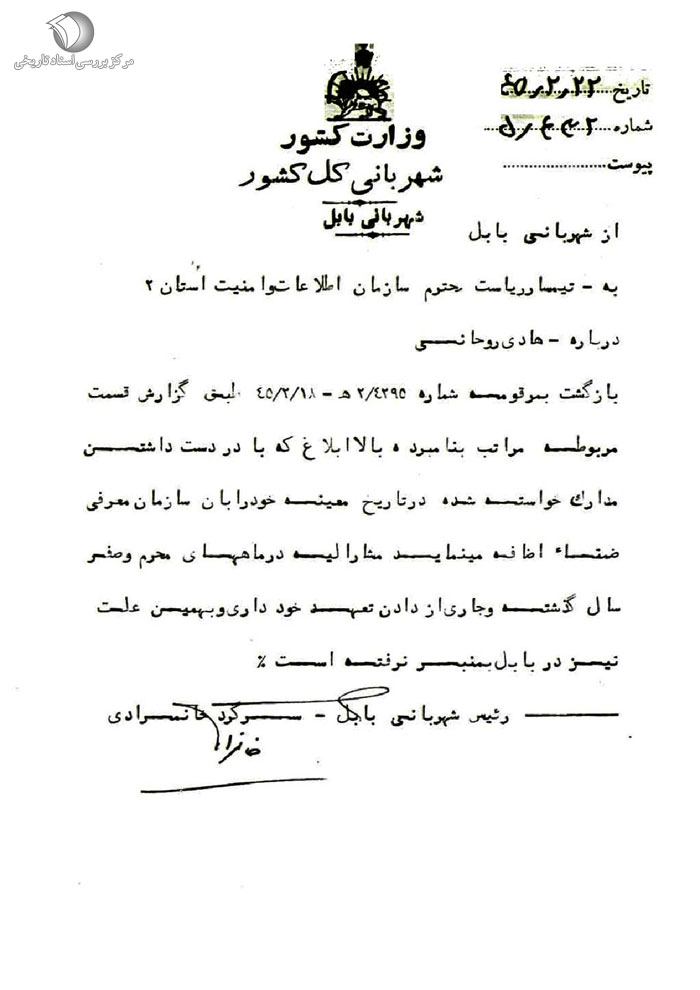 مرکز بررسی اسناد تاریخی
تاریخ ۴۵٫۲٫۲۲
شماره
پیوست
وزارت کشور
شهربانی کل کشور
شهربانی بابل
از شهربانی بابل
به - تیمسار ریاست محترم سازمان اطلاعات وامنیت استان ۲
درباره - هادی روحانی
بازگشت بمرقومه شماره ۲/۴۲۹۵ هـ - ۴۵/۲/۱۸ طبق گزارش قسمت
مربوطه مراتب بنامبرده بالا ابلاغ که با در دست داشتن
مدارک خواسته شده در تاریخ معینه خود را بان سازمان معرفی
ضمناً اظافه مینماید مشارالیه در ماههای محرم وصفر
سال گذشته وجاری از دادن تعهد خود داری وبهمین علت
نیز در بابل بمنبر نرفته است ٪
رئیس شهربانی بابل - سرگرد خانمرادی